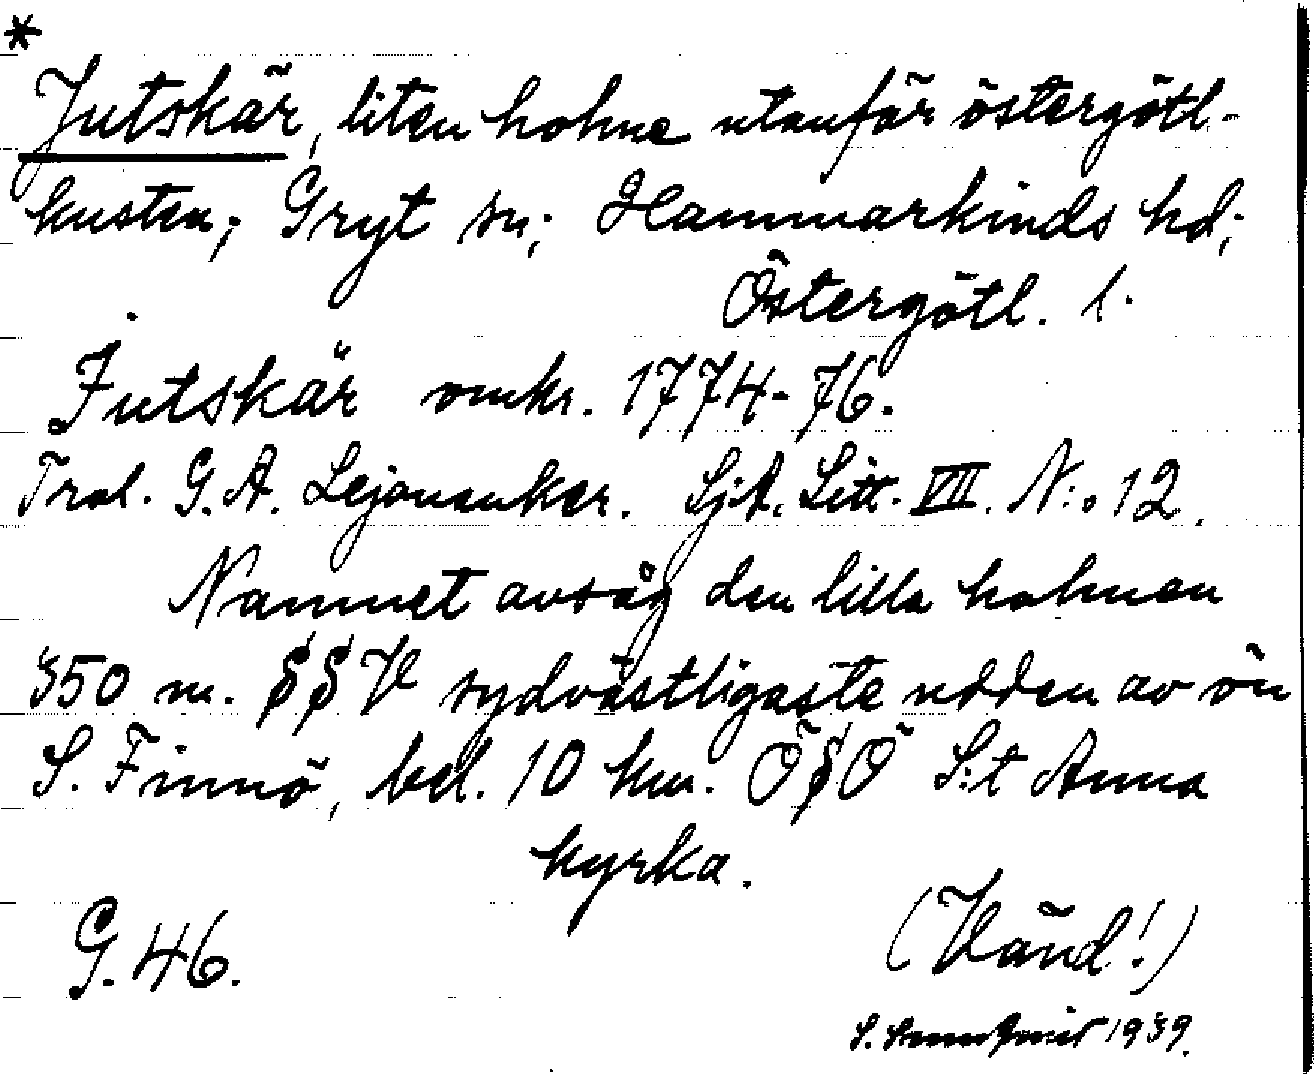 *
Jutskär, liten holme utanför östergötl-
kusten; Gryt sn; Hammarkinds hd;
Östergötl. l.
Jutskär omkr. 1774-76.
Trol. G.A. Lejonanker. Sj.A. Litt. VII. N:o 12.
Namnet avsåg den lilla holmen
350 m. SSV sydvästligaste udden av ön
S. Finnö, bel. 10 km. ÖSÖ S:t Anna
kyrka.
G. 46.
(Vänd!)
S. 1939.